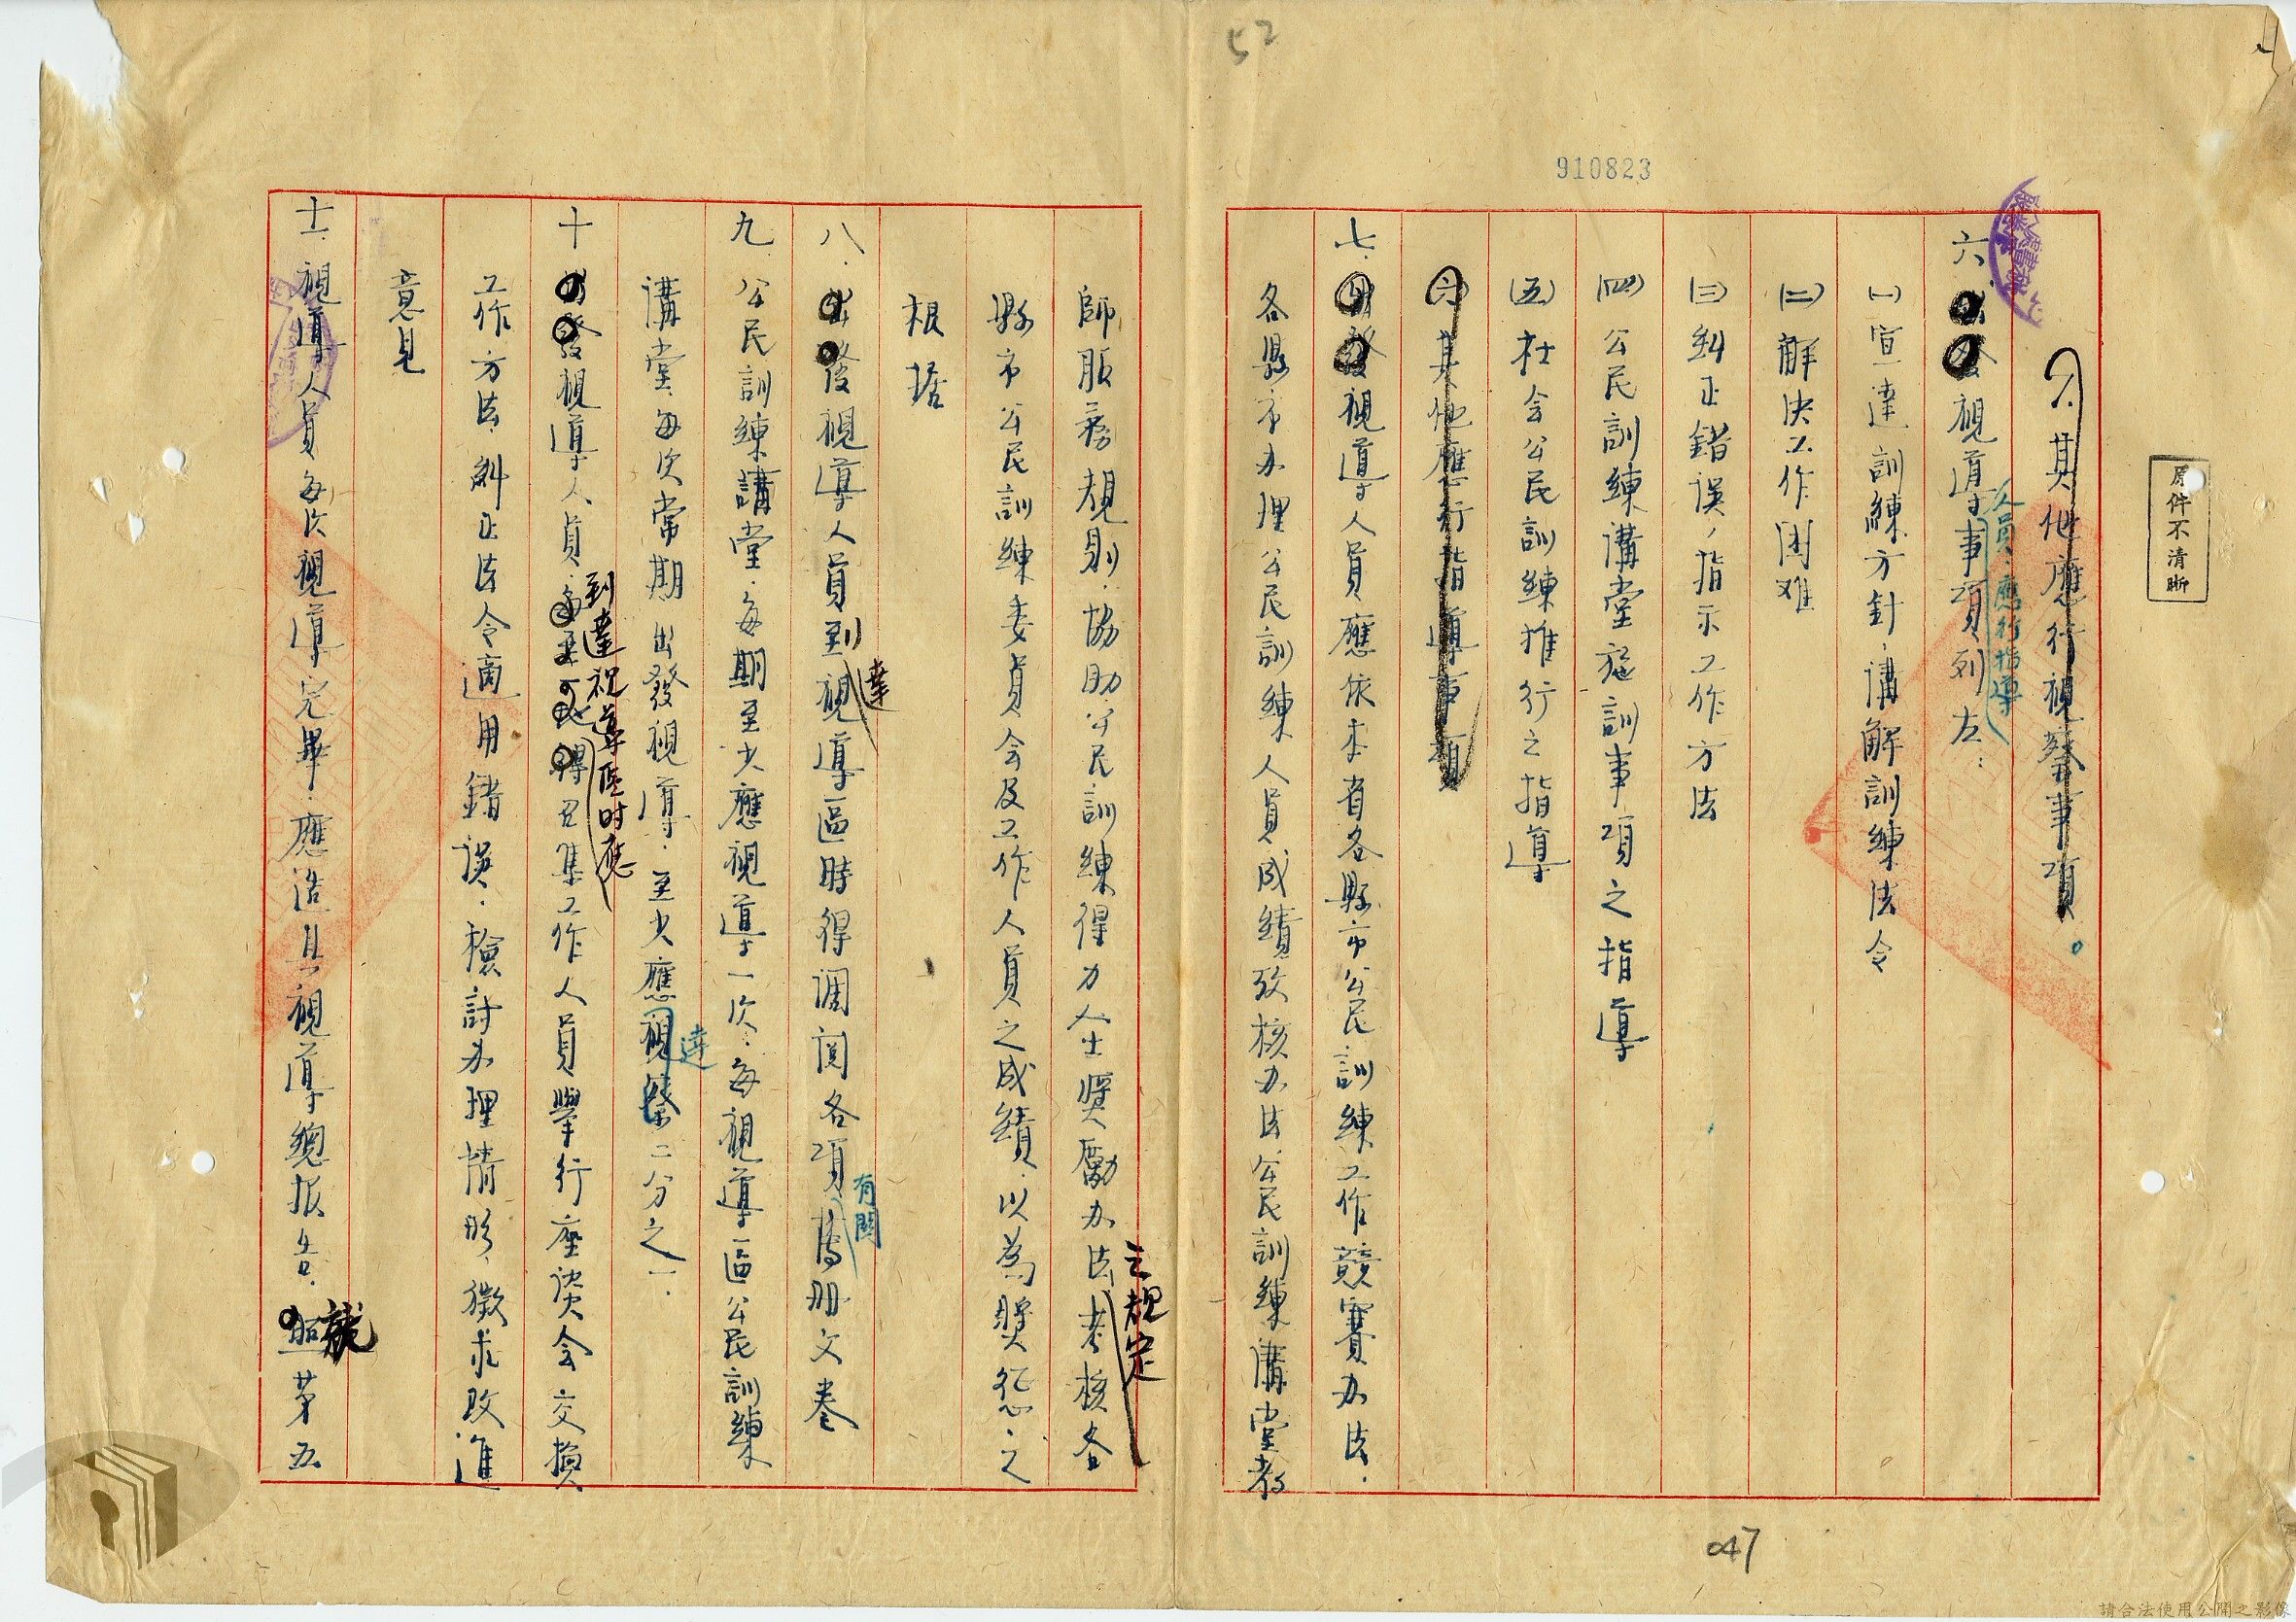 52
910823
原件不清晰
八.其他應行視察事項。
六.出發視導事項列左：
人員.應行指導
(一)宣達訓練方針.講解訓練法令
(二)解決工作困难
(三)糾正錯误,指示工作方法
(四)公民訓練講堂施訓事項之指導
(五)社会公民訓練推行之指導
(六)其他應行指導事項
七.出發視導人員應依本省各縣市公民訓練工作競賽办法.
各縣市办理公民訓練人員成績攷核办法.公民訓練講堂教
師服務規則.協助公民訓練得力人士獎勵办法考核各
之規定
縣市公民訓練委員会及工作人員之成績.以為獎惩之
根据
八.出發後視導人員到視導區時得調閲各項簿册文卷
達
有関
九.公民訓練講堂.每期至少應視導一次.每視導區公民訓練
講堂.每次常期出發視導.至少應視察二分之一.
達
十.出發視導人員.每至一地得召集工作人員舉行座谈会交換
到達視導區時應
工作方法.糾正法令適用錯误.檢討办理情形.徵求改進
意見
十一.視導人員每次視導完畢.應造具視導總报告.照苐五
就
047
請合法使用公開之影像